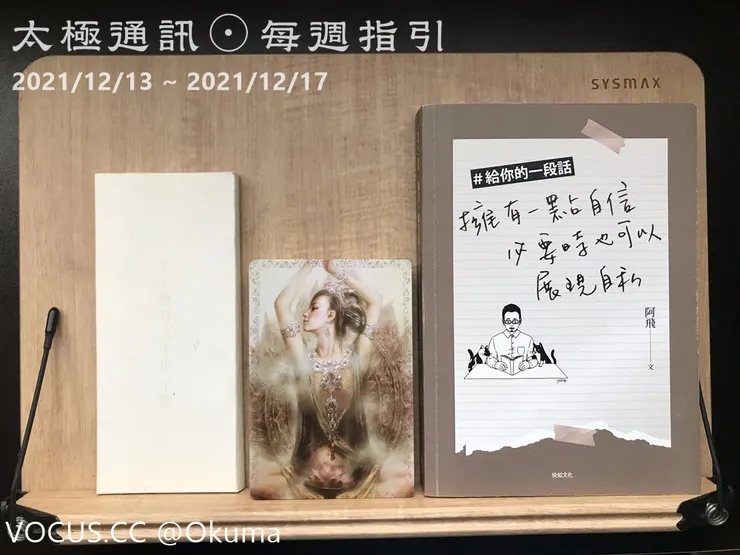 太極通訊☉每週指引
2021/12/13 ~ 2021/12/17
SYSMAX
#給你的一段話
擁有一點自信
必要時也可以
展現自私
阿飛
文
悅知文化
VOCUS.CC @Okuma